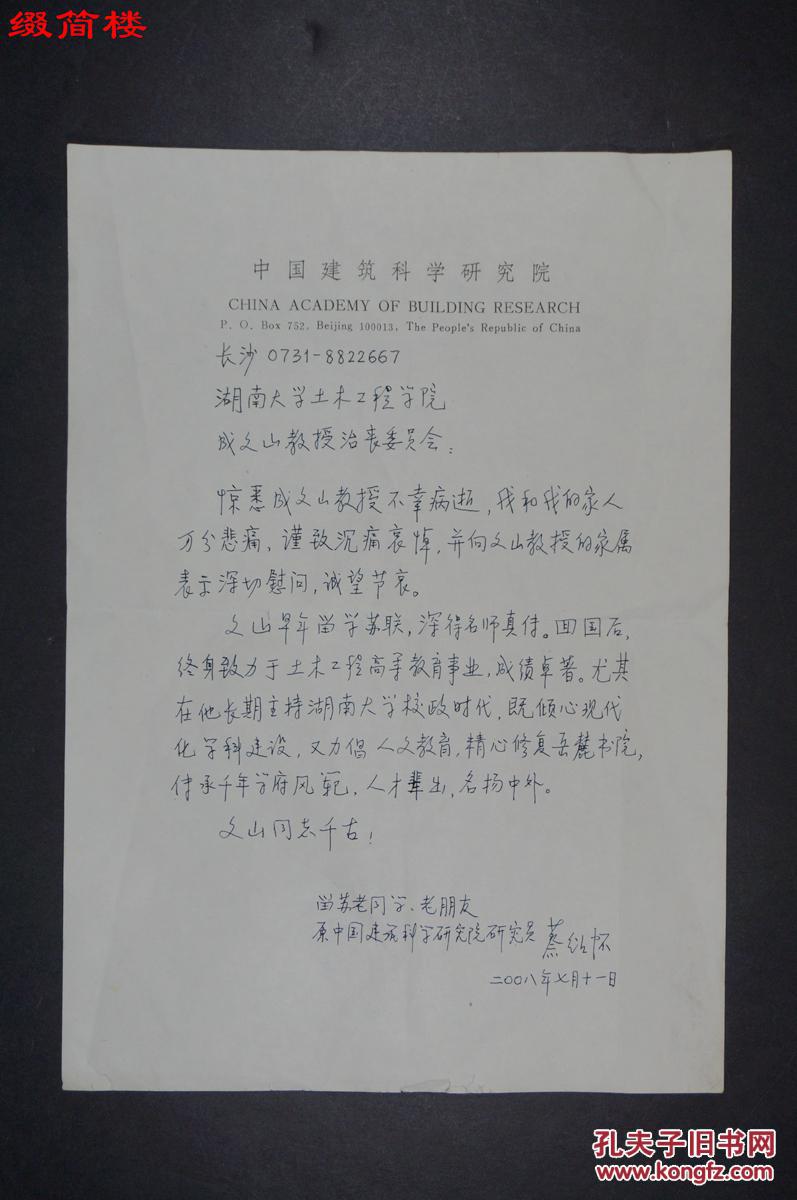 缀简楼
中国建筑科学研究院
CHINA ACADEMY OF BUILDING RESEARCH
P. O. Box 752, Beijing 100013, The People's Republic of China
长沙 0731-8822667
湖南大学土木工程学院
成文山教授治丧委员会:
惊悉成文山教授不幸病逝,我和我的家人
万分悲痛,谨致沉痛哀悼,并向文山教授的家属
表示深切慰问,诚望节哀。
文山早年留学苏联,深得名师真传。回国后,
终身致力于土木工程高等教育事业,成绩卓著。尤其
在他长期主持湖南大学校政时代,既倾心现代
化学科建设,又力倡人文教育,精心修复岳麓书院,
传承千年学府风范,人才辈出,名扬中外。
文山同志千古!
留苏老同学、老朋友
原中国建筑科学研究院研究员 蔡绍怀
二〇〇八年七月十一日
孔夫子旧书网
www.kongfz.com